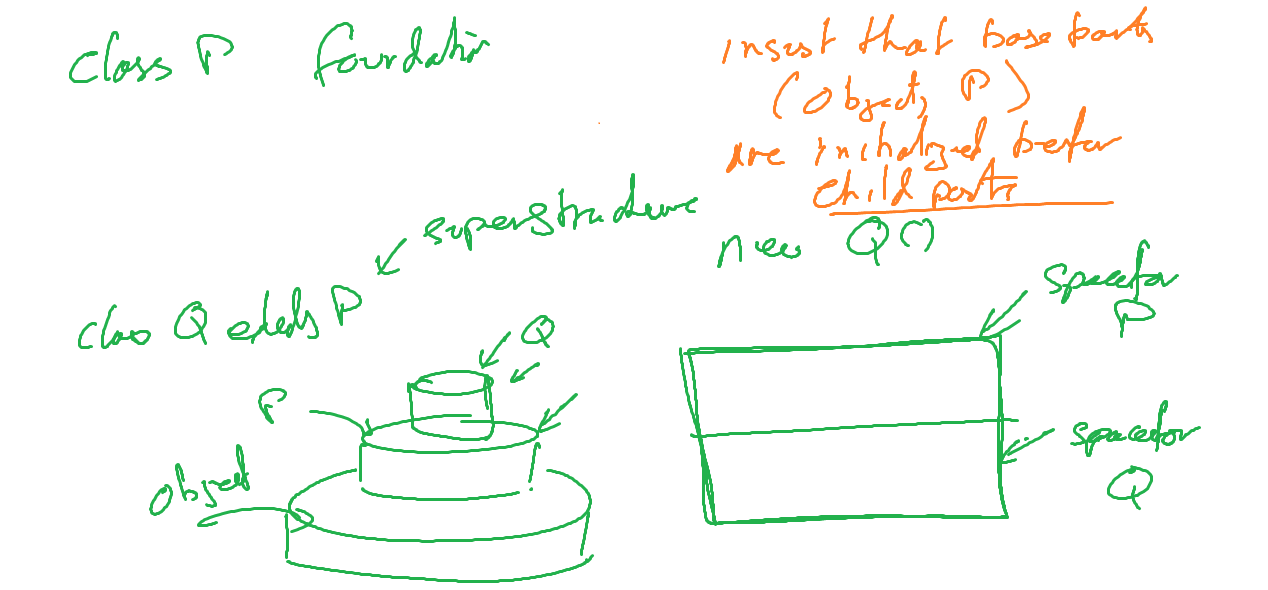 class P foundation
insist that base parts
(Object, P)
are initialized before
child parts
superstructure
new Q()
space for
P
class Q extends P
Q
P
Object
space for
Q